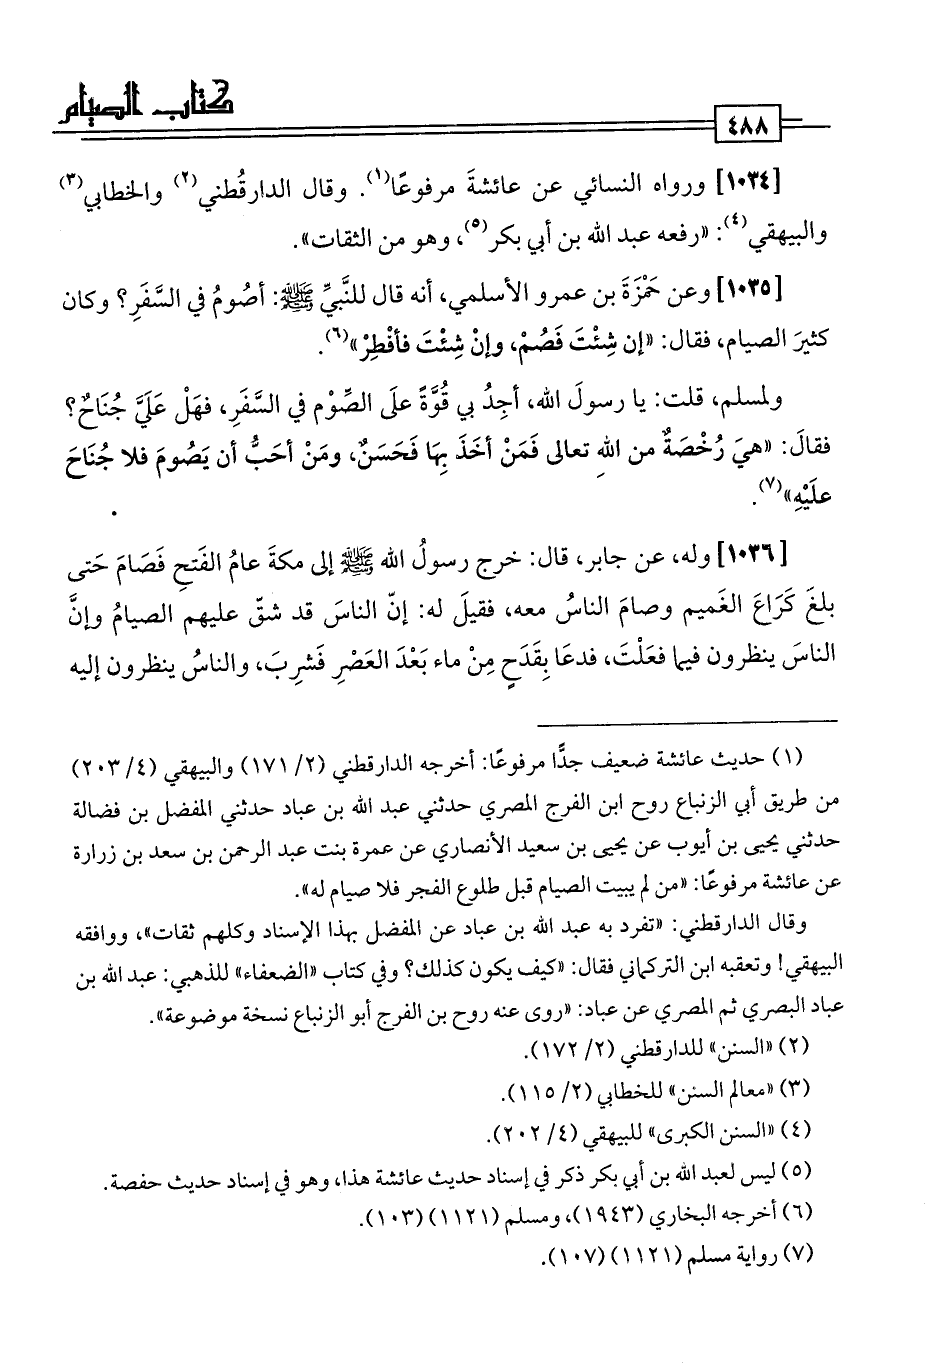 كتاب الصيام
٤٨٨
[١٠٣٤] ورواه النسائي عن عائشةَ مرفوعًا(١). وقال الدارقُطني(٢) والخطابي(٣)
والبيهقي(٤): «رفعه عبد الله بن أبي بكر(٥)، وهو من الثقات».
[١٠٣٥] وعن حَمْزَةَ بن عمرو الأسلمي، أنه قال للنَّبيِّ ﷺ: أصُومُ في السَّفَرِ؟ وكان
كثيرَ الصيام، فقال: «إن شِئْتَ فَصُمْ، وإنْ شِئْتَ فأفْطِرْ»(٦).
ولمسلم، قلت: يا رسولَ الله، أجِدُ بي قُوَّةً علَى الصِّوْم في السَّفَرِ، فهَلْ عَلَيَّ جُنَاحٌ؟
فقالَ: «هيَ رُخْصَةٌ من اللهِ تعالى فَمَنْ أخَذَ بِهَا فَحَسَنٌ، ومَنْ أحَبُّ أن يَصُومَ فلا جُنَاحَ
علَيْهِ»(٧).
[١٠٣٦] وله، عن جابر، قال: خرج رسولُ الله ﷺ إلى مكةَ عامُ الفَتحِ فَصَامَ حَتى
بلغَ كَرَاعَ الغَميم وصامَ الناسُ معه، فقيلَ له: إنّ الناسَ قد شقّ عليهم الصيامُ وإنَّ
الناسَ ينظرون فيما فعَلْتَ، فدعَا بِقَدَحٍ مِنْ ماء بَعْدَ العَصْرِ فَشرِبَ، والناسُ ينظرون إليه
(١) حديث عائشة ضعيف جدًّا مرفوعًا: أخرجه الدارقطني (٢/ ١٧١) والبيهقي (٤/ ٢٠٣)
من طريق أبي الزنباع روح ابن الفرج المصري حدثني عبد الله بن عباد حدثني المفضل بن فضالة
حدثني يحيى بن أيوب عن يحيى بن سعيد الأنصاري عن عمرة بنت عبد الرحمن بن سعد بن زرارة
عن عائشة مرفوعًا: «من لم يبيت الصيام قبل طلوع الفجر فلا صيام له».
وقال الدارقطني: «تفرد به عبد الله بن عباد عن المفضل بهذا الإسناد وكلهم ثقات»، ووافقه
البيهقي! وتعقبه ابن التركماني فقال: «كيف يكون كذلك؟ وفي كتاب «الضعفاء» للذهبي: عبد الله بن
عباد البصري ثم المصري عن عباد: «روى عنه روح بن الفرج أبو الزنباع نسخة موضوعة».
(٢) «السنن» للدارقطني (٢/ ١٧٢).
(٣) «معالم السنن» للخطابي (٢/ ١١٥).
(٤) «السنن الكبرى» للبيهقي (٤/ ٢٠٢).
(٥) ليس لعبد الله بن أبي بكر ذكر في إسناد حديث عائشة هذا، وهو في إسناد حديث حفصة.
(٦) أخرجه البخاري (١٩٤٣)، ومسلم (١١٢١) (١٠٣).
(٧) رواية مسلم (١١٢١) (١٠٧).